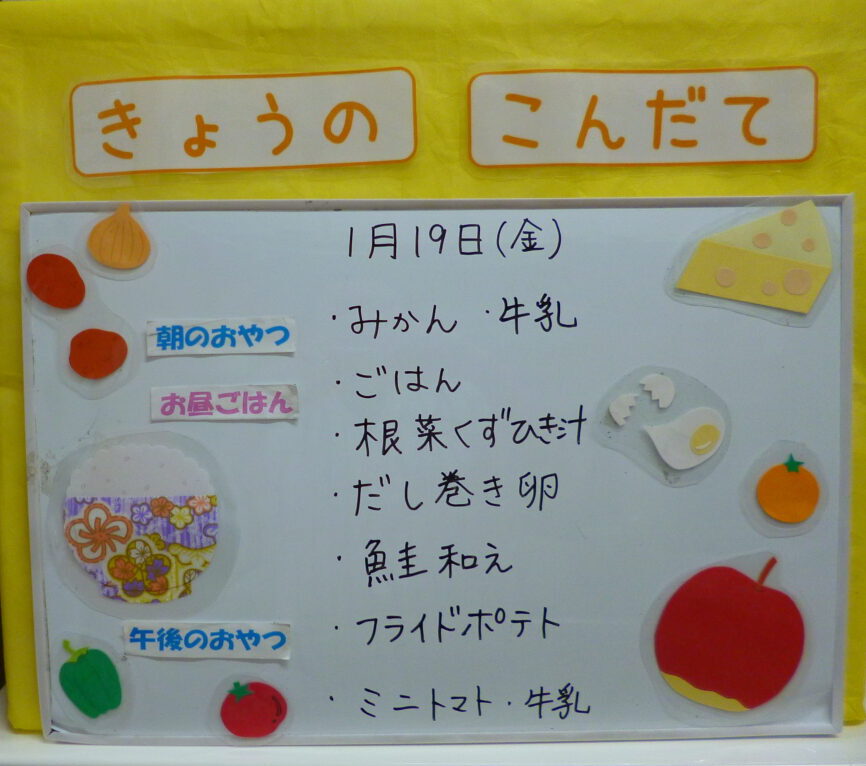 きょうの こんだて
1月19日(金)
朝のおやつ ・みかん ・牛乳
お昼ごはん ・ごはん
・根菜くずひき汁
・だし巻き卵
・鮭和え
・フライドポテト
午後のおやつ
・ミニトマト・牛乳